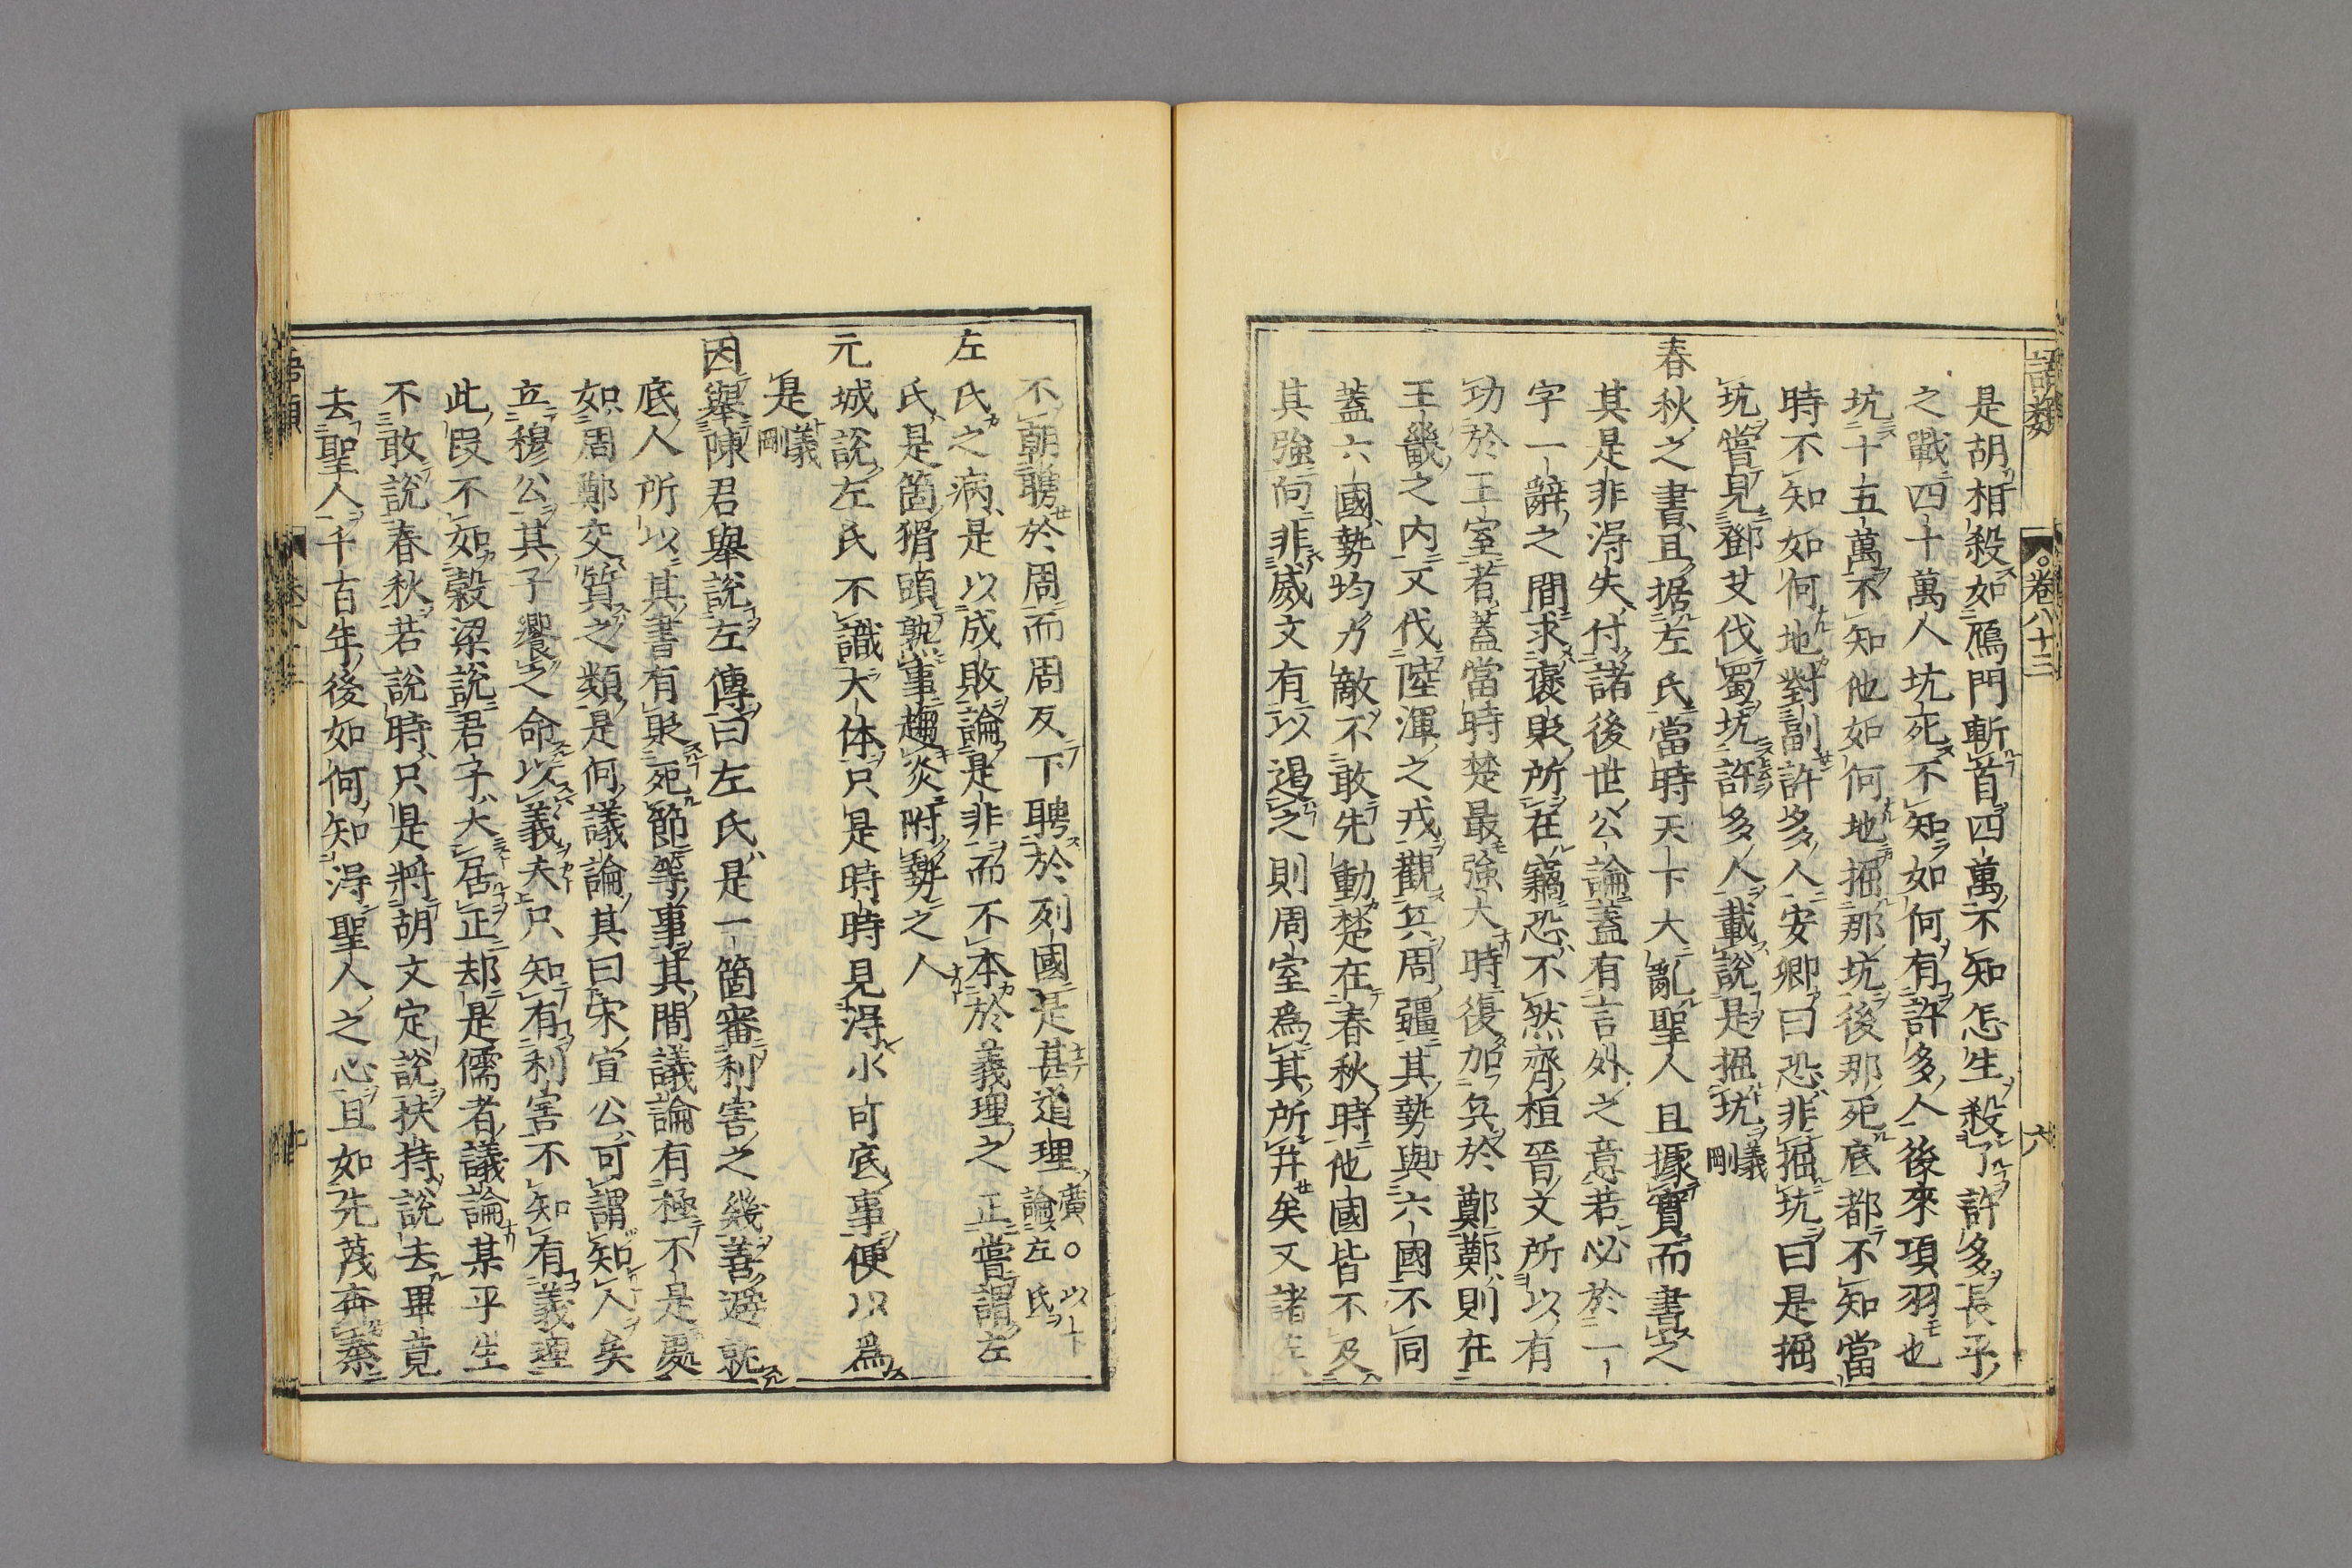 語類 卷八十三 六
是胡相殺如鴈門斬首四萬不知怎生殺了許多長平
之戰四十萬人坑死不知如何有許多人後來項羽也
坑二十五萬不知他如何地掘那坑後那死底都不知當
時不知如何地對副許多人安卿曰恐非掘坑曰是掘
坑嘗見鄧艾伐蜀坑許多人載說是掘坑義剛
春秋之書且据左氏當時天下大亂聖人且據實而書之
其是非得失付諸後世公論蓋有言外之意若必於一
字一辭之間求褒貶所在竊恐不然齊桓晉文所以有
功於王室者蓋當時楚最強大時復加兵於鄭鄭則在
王畿之內又伐陸渾之戎觀兵周疆其勢與六國不同
蓋六國勢均力敵不敢先動楚在春秋時他國皆不及
其強向非威文有以遏之則周室為其所并矣又諸侯
不朝聘於周而周反下聘於列國是甚道理廣○以下論左氏
左氏之病是以成敗論是非而不本於義理之正嘗謂左
氏是箇猾頭熟事趨炎附勢之人
元城說左氏不識大体只是時時見得小可底事便以為
是義剛
因舉陳君舉說左傳曰左氏是一箇審利害之幾善避就
底人所以其書有貶死節等事其間議論有極不是處
如周鄭交質之類是何議論其曰宋宣公可謂知人矣
立穆公其子饗之命以義夫只知有利害不知有義理
此段不如穀梁說君子大居正却是儒者議論某平生
不敢說春秋若說時只是將胡文定說扶持說去畢竟
去聖人千百年後如何知得聖人之心且如先蔑奔秦